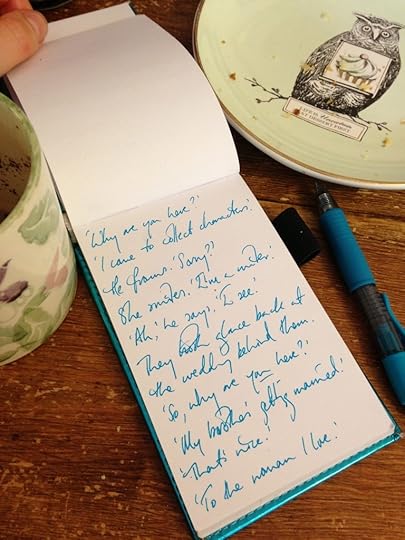 'Why are you here?'
'I came to collect characters.'
He frowns. 'Sorry?'
She smiles. 'I'm a writer.'
'Ah,' he says. 'I see.'
They both glance back at
the wedding behind them.
'So, why are you here?'
'My brother's getting married.'
'That's nice.'
'To the woman I love.'
LIFE IS Uncertain
EAT DESSERT FIRST